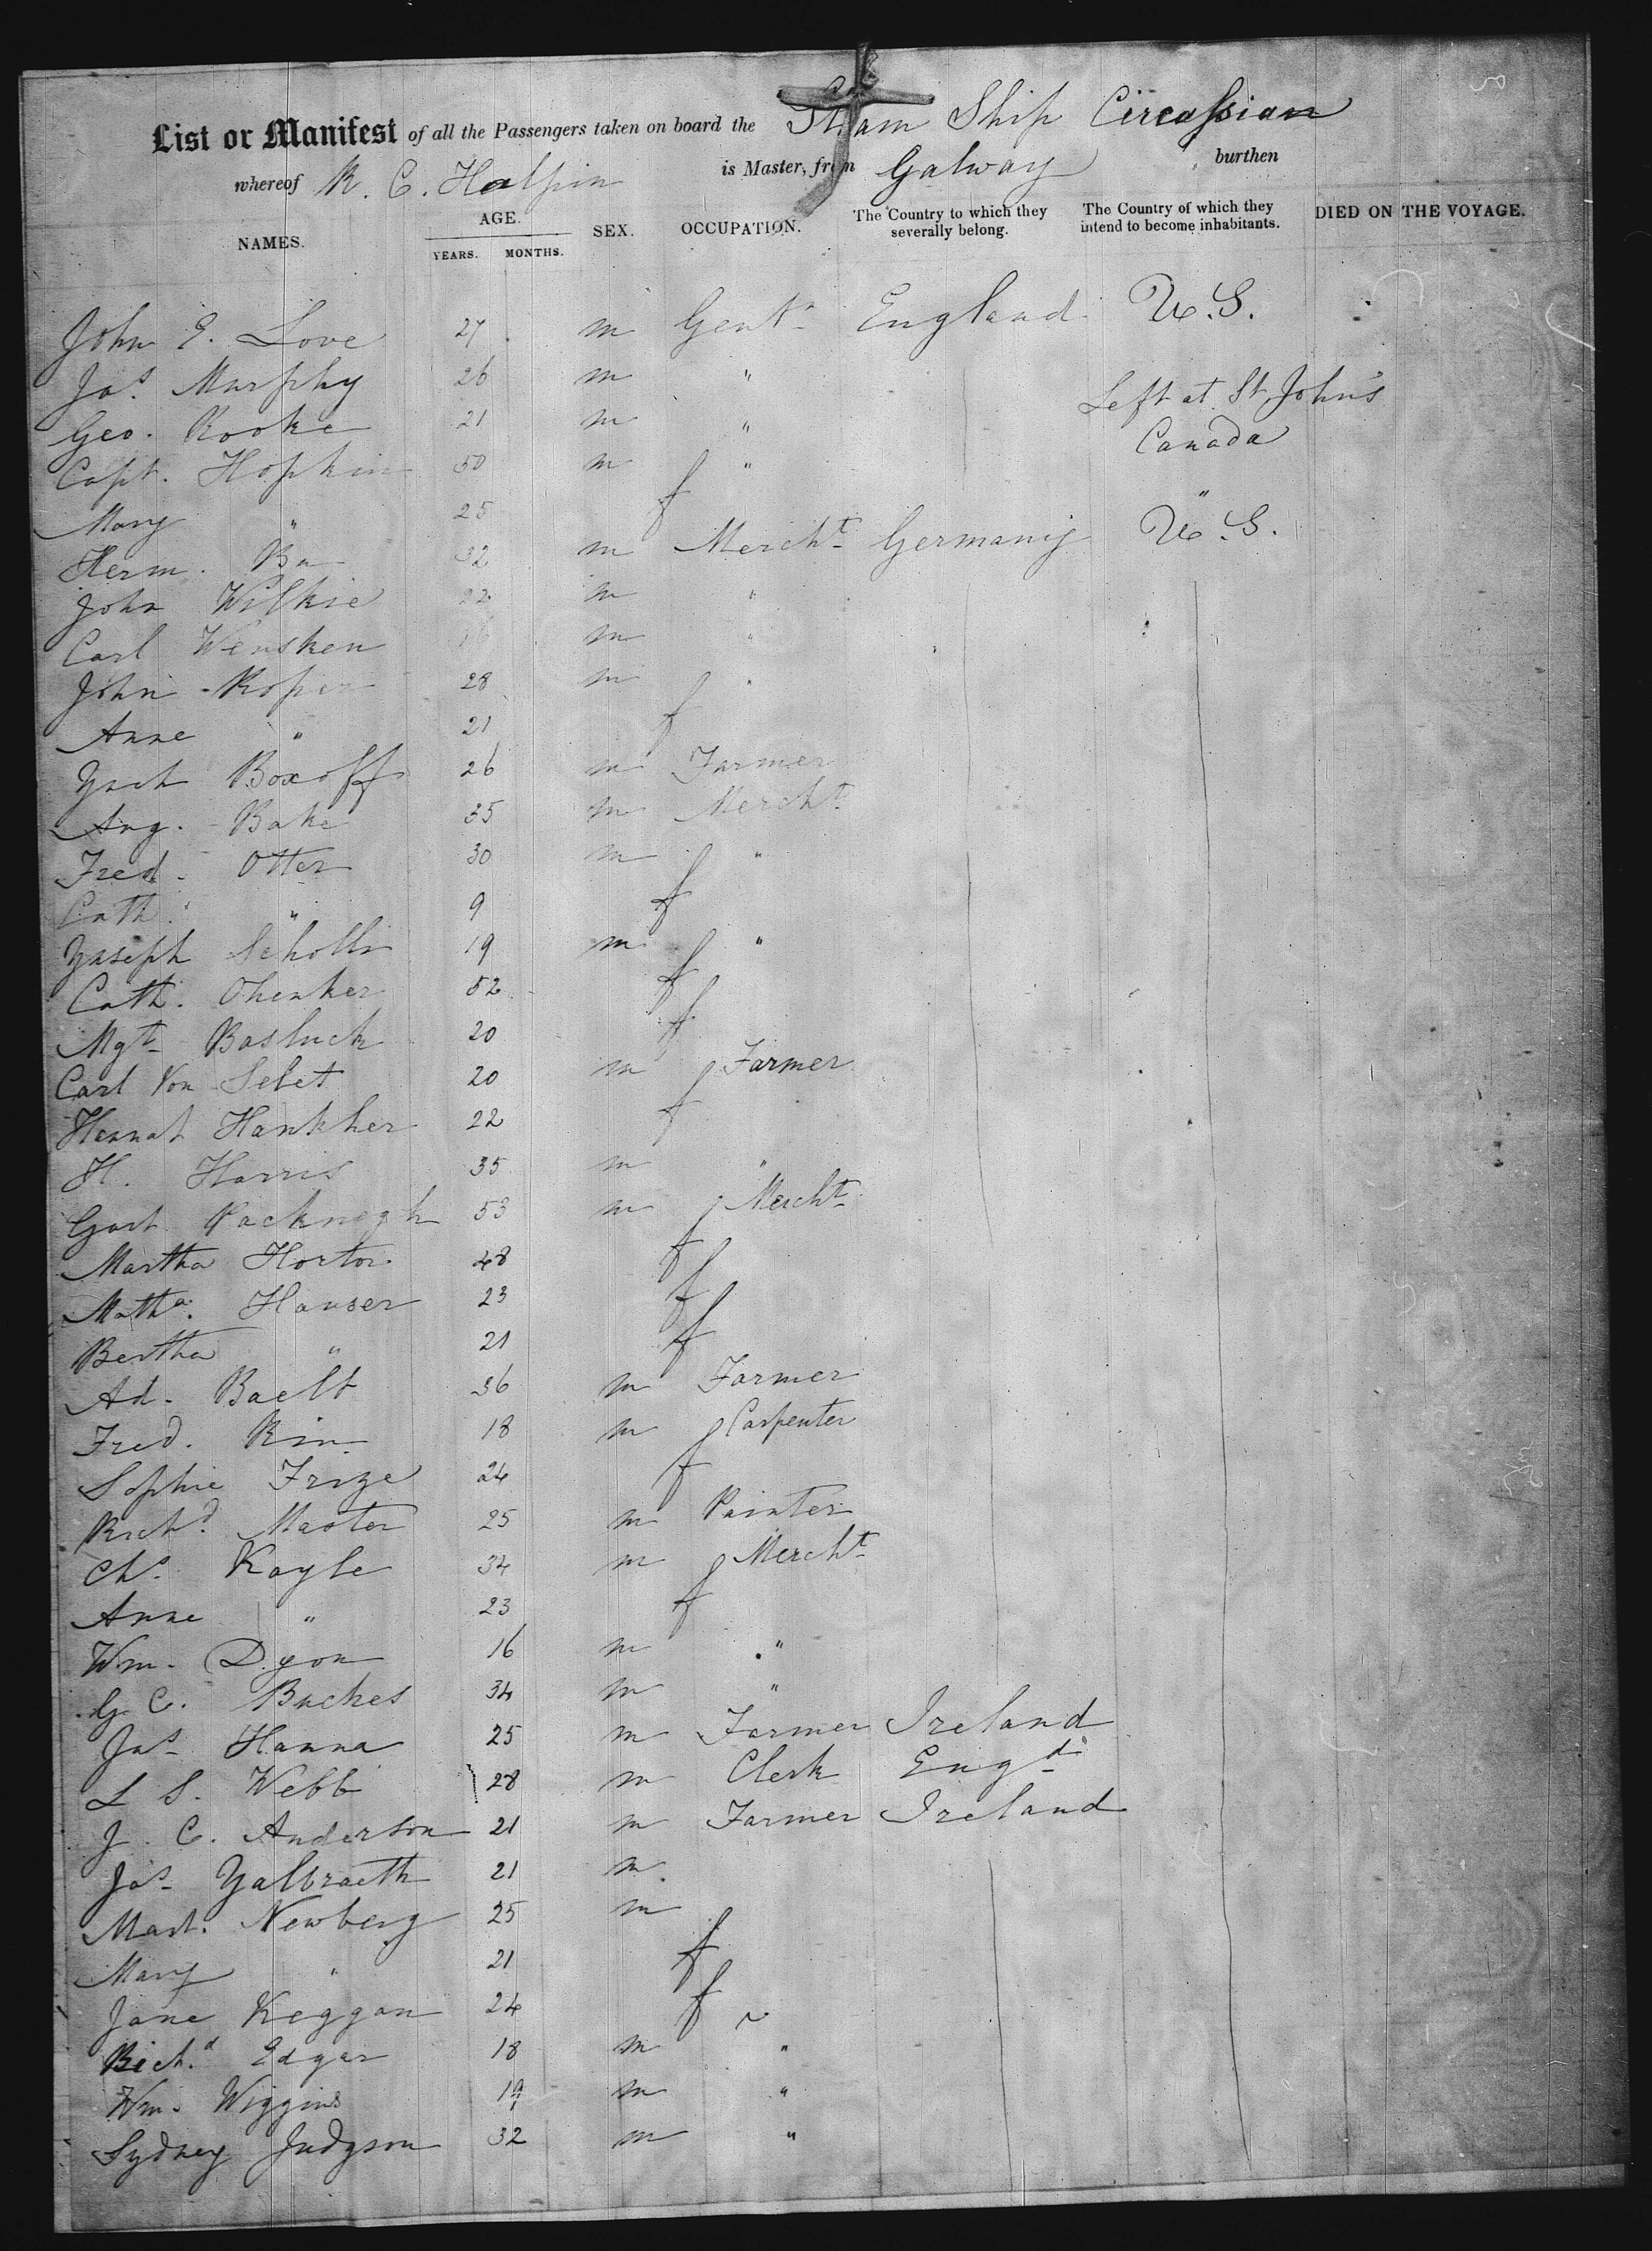 List or Manifest of all the Passengers taken on board the Steam Ship Circassian
whereof R. C. Halpin is Master, from Galway burthen
NAMES. AGE. YEARS. MONTHS. SEX. OCCUPATION. The Country to which they severally belong. The Country of which they intend to become inhabitants. DIED ON THE VOYAGE.
John E. Love 27 m Gent. England U.S.
Jas. Murphy 26 m "
Geo. Rooke 21 m " Left at St. John's
Capt. Hopkin 50 m " Canada
Mary " 25 f "
Herm. 32 m Mercht. Germany U.S.
John Wilkie 22 m "
Carl Wensken 16 m "
John Roper 28 m "
Anne " 21 f
Boxoff 26 m Farmer
Aug. Bake 35 m Mercht.
Fred. Otter 30 m "
Cath. " 9 f
Joseph 19 m "
Cath. Ohenker 52 f
Mgt. Basluck 20 f
Carl Von Selet 20 m Farmer
Hannah Hankher 22 f
H. Harris 35 m "
53 m Mercht.
Martha Horton 48 f
Matha. Hauser 23 f
Bertha " 21 f
Ad. Baelt 36 m Farmer
Fred. 18 m Carpenter
Sophie Frize 24 f
Richd. Master 25 m Painter
Chs. Kayle 34 m Mercht.
Anne " 23 f
Wm. Dyon 16 m "
G. C. Buches 34 m "
Jas. Hanna 25 m Farmer Ireland
L S. Webb 28 m Clerk Engd.
J. C. Anderson 21 m Farmer Ireland
Jas. Galbraeth 21 m
Mart. Newberg 25 m
Mary " 21 f
Jane Keggan 24 f
Richd. Edgar 18 m "
Wm. Wiggins 19 m "
Sydney Judgson 32 m "